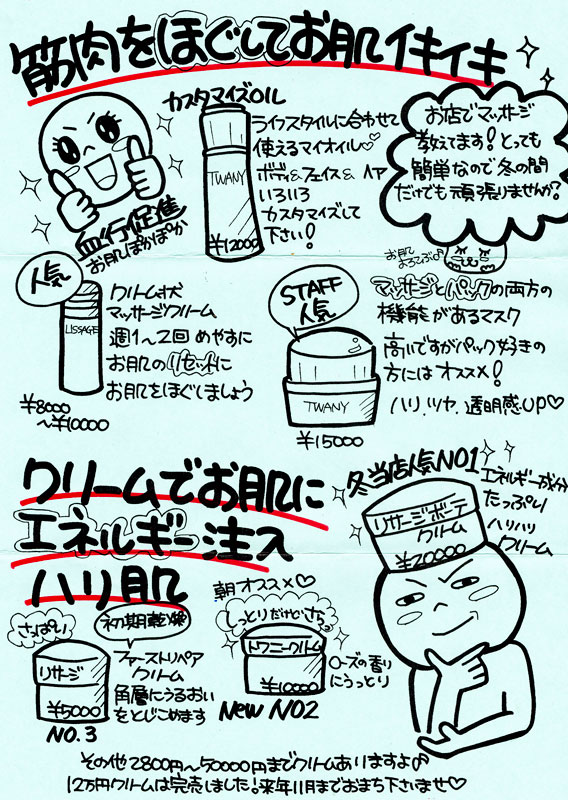 筋肉をほぐしてお肌イキイキ
カスタマイズOIL
ライフスタイルに合わせて
使えるマイオイル♡
ボディ&フェイス&ヘア
いろいろ
カスタマイズして
下さい!
TWANY
¥12000
お店でマッサージ
教えてます!とっても
簡単なので冬の間
だけでも頑張りませんか?
血行促進
お肌ぽかぽか
お肌
よろこぶ♪
人気
クリーム状
マッサージクリーム
週1〜2回めやすに
お肌のリセットに
お肌をほぐしましょう
LISSAGE
¥8000
〜¥10000
STAFF
人気
TWANY
¥15000
マッサージとパックの両方の
機能があるマスク
高いですがパック好きの
方にはオススメ!
ハリ.ツヤ.透明感UP♡
クリームでお肌に
エネルギー注入
ハリ肌
冬当店人気NO1
エネルギー成分
たっぷり
ハリハリ
クリーム
リサージボーテ
クリーム
¥20000
さっぱり
初期乾燥
リサージ
¥5000
NO.3
ファーストリペア
クリーム
角層にうるおい
をとじこめます
朝オススメ♡
しっとりだけどさらっ
トワニークリーム
¥10000
New NO2
ローズの香り
にうっとり
その他2800円〜50000円までクリームありますよ♪
12万円クリームは完売しました!来年11月までおまち下さいませ♡